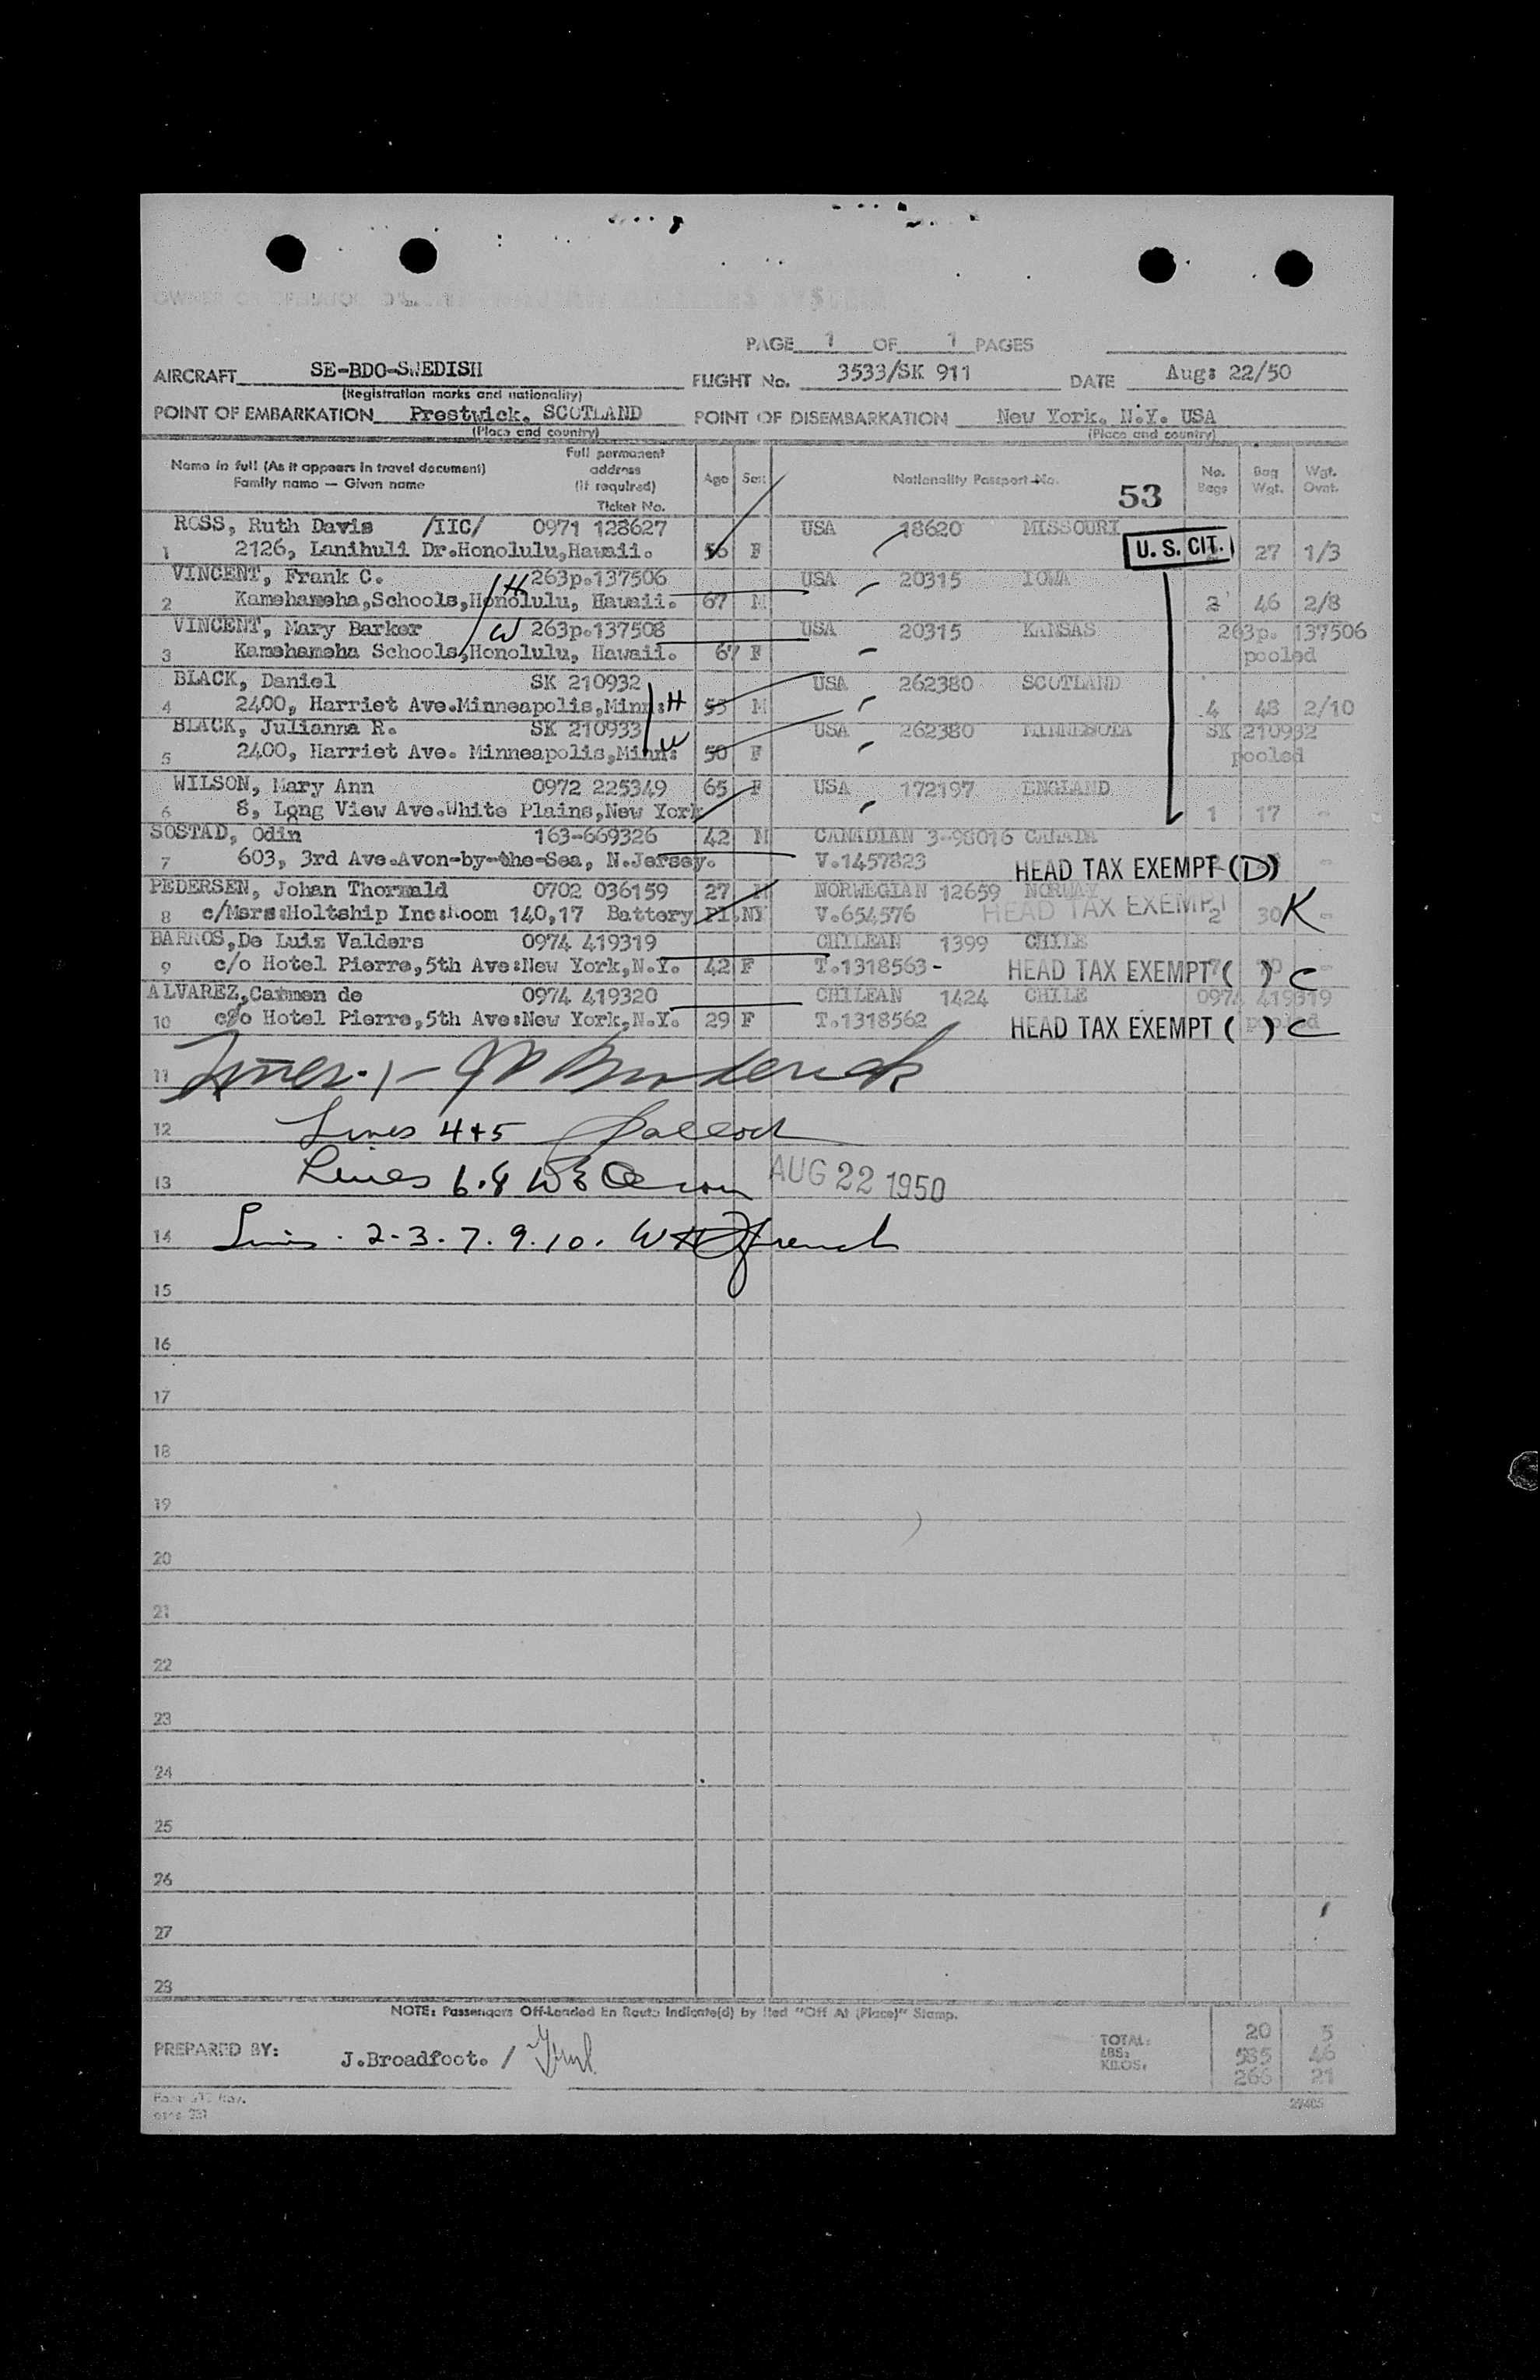 PAGE 1 OF 1 PAGES
AIRCRAFT SE-BDO-SWEDISH FLIGHT No. 3533/SK 911 DATE Aug: 22/50
(Registration marks and nationality)
POINT OF EMBARKATION Prestwick, SCOTLAND POINT OF DISEMBARKATION New York. N.Y. USA
(Place and country) (Place and country)
Name in full (As it appears in travel document) Family name — Given name Full permanent address (If required) Ticket No. Age Sex Nationality Passport No. No. Bags Bag Wgt. Wgt. Ovnt.
53
ROSS, Ruth Davis /IIC/ 0971 128627 USA 18620 MISSOURI
1 2126, Lanihuli Dr.Honolulu,Hawaii. 56 F U. S. CIT. 27 1/3
VINCENT, Frank C. H 263p.137506 USA 20315 IOWA
2 Kamehameha,Schools,Honolulu, Hawaii. 67 M 3 46 2/8
VINCENT, Mary Barker W 263p.137508 USA 20315 KANSAS 263p. 137506
3 Kamehameha Schools,Honolulu, Hawaii. 67 F pooled
BLACK, Daniel SK 210932 USA 262380 SCOTLAND
4 2400, Harriet Ave.Minneapolis,Minn: H 53 M 4 48 2/10
BLACK, Julianna R. SK 210933 USA 262380 MINNESOTA SK 210932
5 2400, Harriet Ave. Minneapolis,Minn: W 50 F pooled
WILSON, Mary Ann 0972 225349 65 F USA 172197 ENGLAND
6 8, Long View Ave.White Plains,New York 1 17 -
SOSTAD, Odin 163-669326 42 M CANADIAN 3-98016 CANADA
7 603, 3rd Ave.Avon-by-the-Sea, N.Jersey. V.1457823 HEAD TAX EXEMPT (D) -
PEDERSEN, Johan Thormald 0702 036159 27 M NORWEGIAN 12659 NORWAY
8 c/Mers:Holtship Inc:Room 140,17 Battery Pl.NY V.654576 HEAD TAX EXEMPT 2 30 K -
BARROS,De Luiz Valders 0974 419319 CHILEAN 1399 CHILE
9 c/o Hotel Pierre,5th Ave:New York,N.Y. 42 F T.1318563- HEAD TAX EXEMPT ( ) C
ALVAREZ,Carmen de 0974 419320 CHILEAN 1424 CHILE 0974 419319
10 c/o Hotel Pierre,5th Ave:New York,N.Y. 29 F T.1318562 HEAD TAX EXEMPT ( ) C pooled
11 Lines. 1- Broderick
12 Lines 4+5
13 Lines 6.8 AUG 22 1950
14 Lines. 2-3.7.9.10. French
15
16
17
18
19
20
21
22
23
24
25
26
27
28
NOTE: Passengers Off-Loaded En Route Indicate(d) by Red "Off At (Place)" Stamp.
PREPARED BY: J.Broadfoot. /
TOTAL: 20 5
LBS: 585 46
KILOS. 266 21
29405